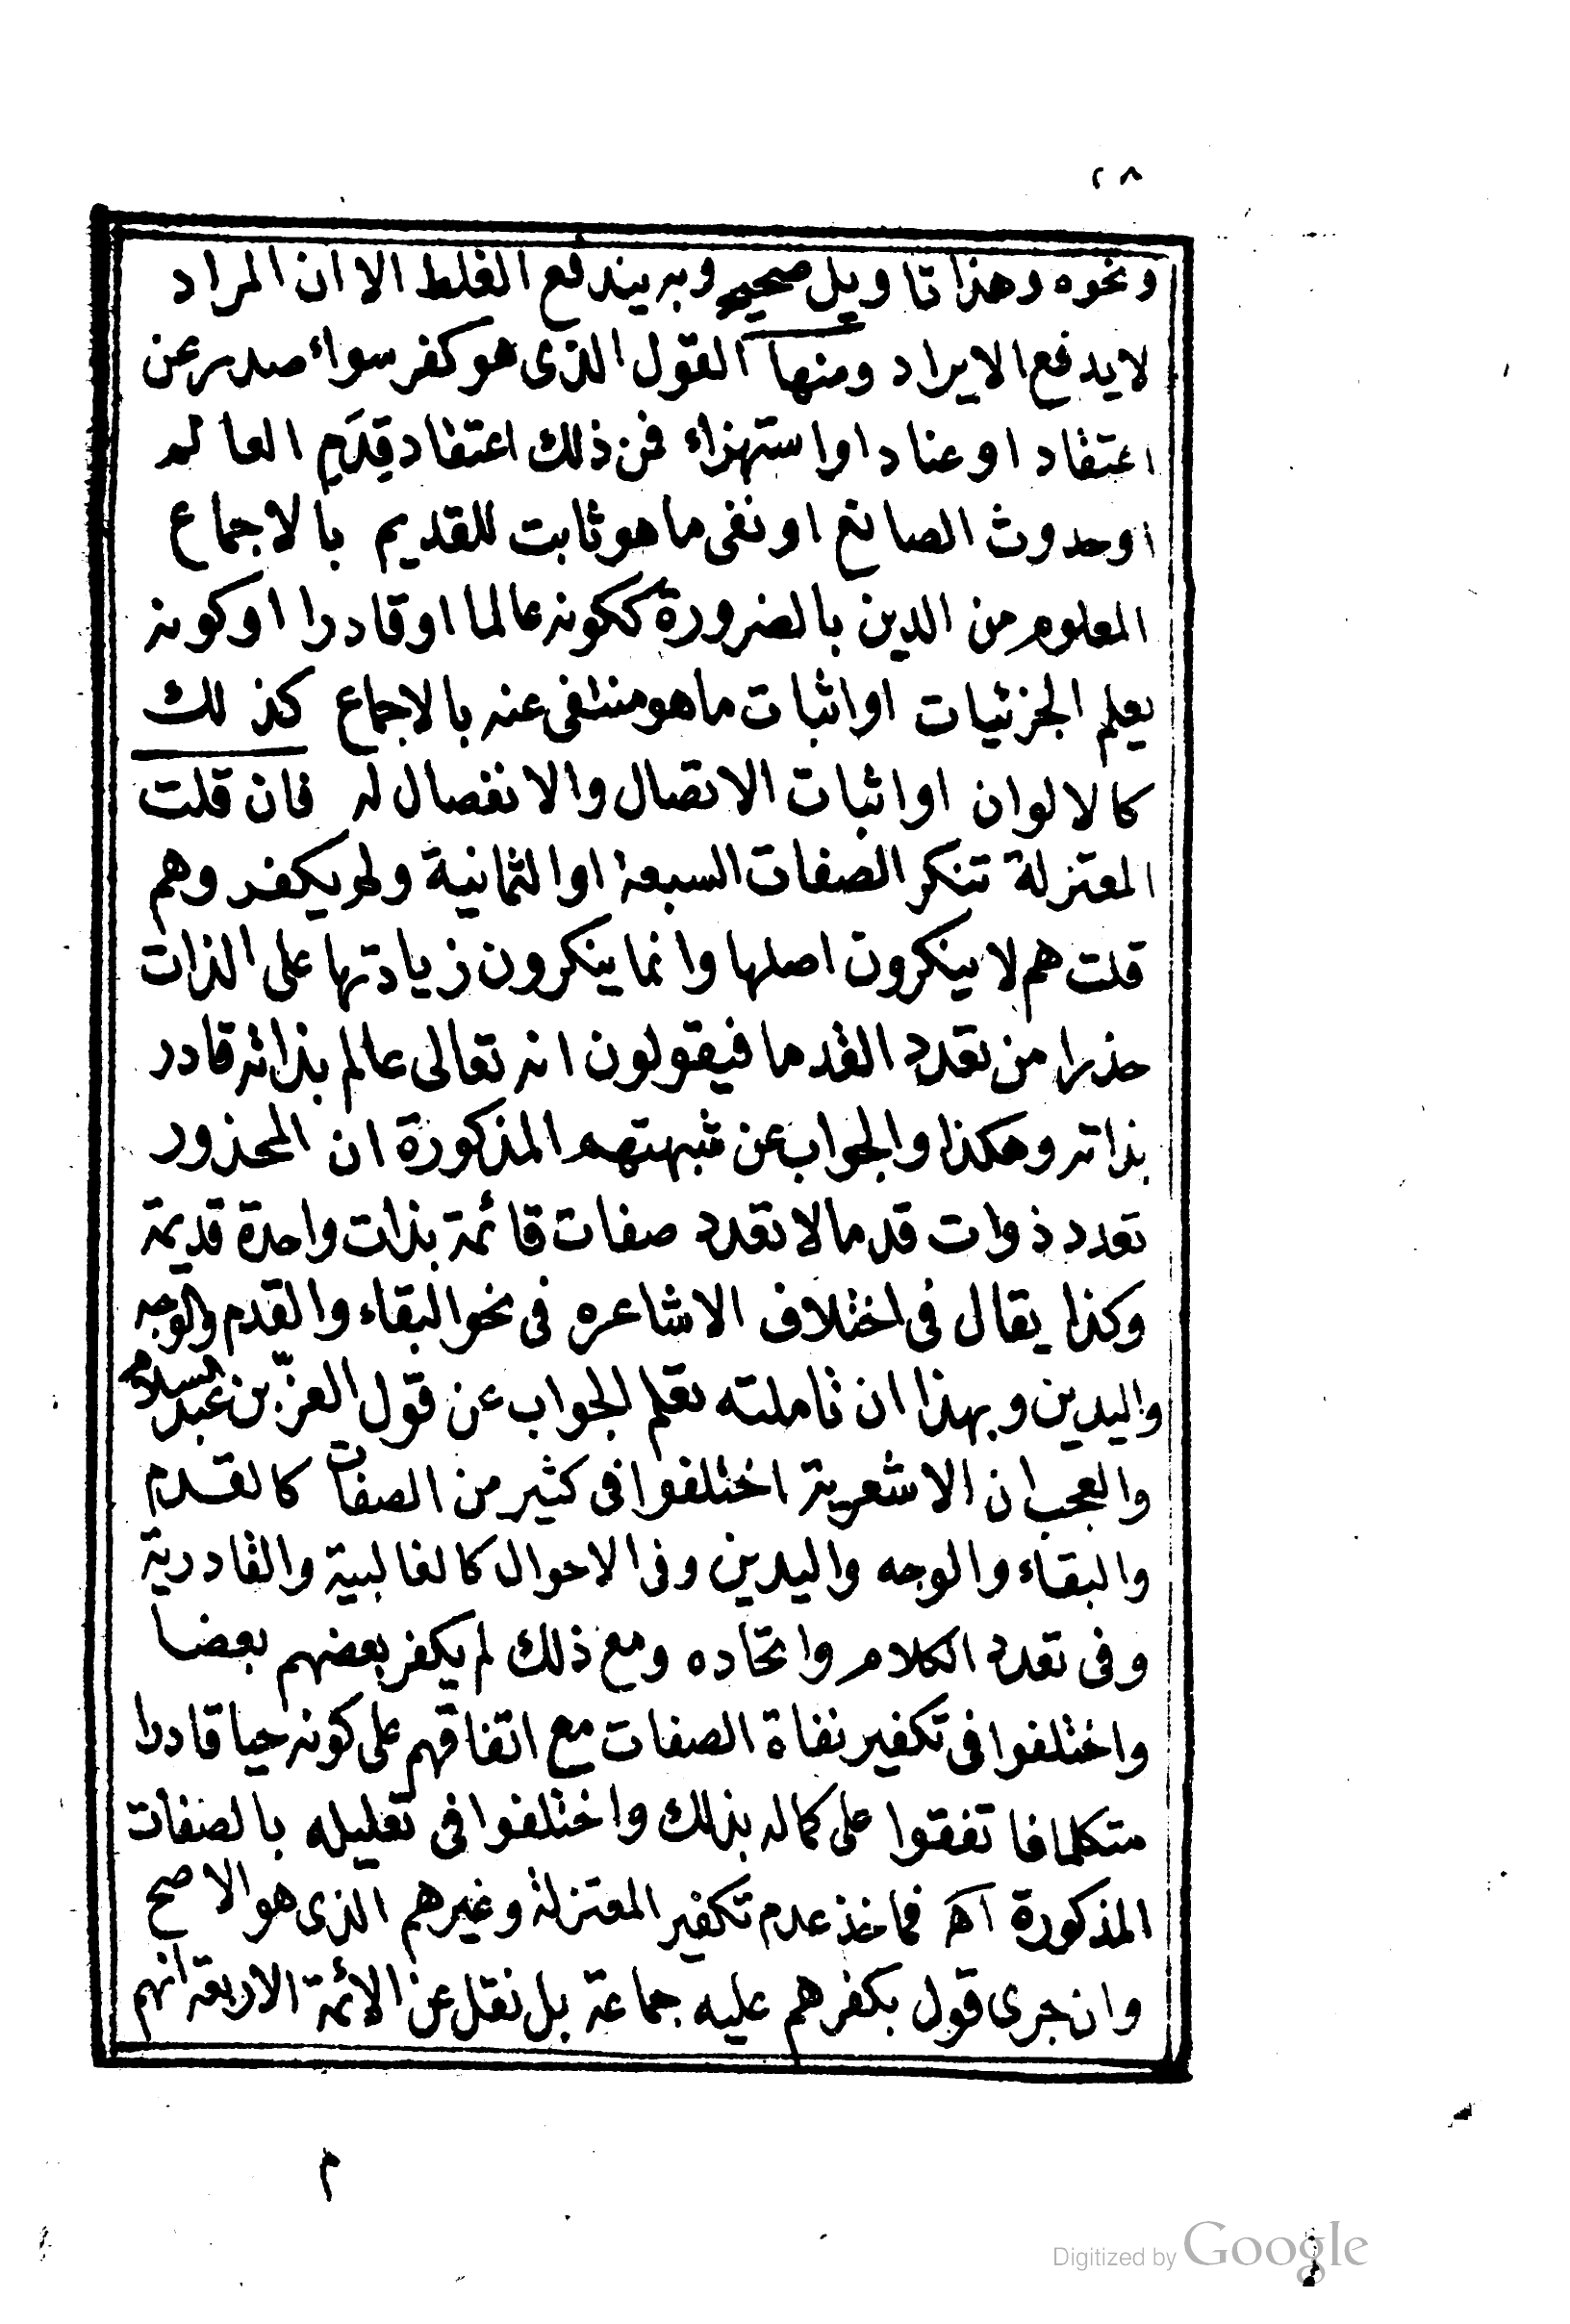 ٢٨
ونحوه وهذا تاويل صحيح وبه يندفع الغلط الا ان المراد
لا يدفع الايراد ومنها القول الذى هو كفر سواء صدر عن
اعتقاد او عناد او استهزاء فمن ذلك اعتقاد قِدَمِ العالم
او حدوث الصانع او نفى ما هو ثابت للقديم بالاجماع
المعلوم من الدين بالضرورة ككونه عالما او قادرا او كونه
يعلم الجزئيات او اثبات ما هو منتفى عنه بالاجماع كذلك
كالالوان او اثبات الاتصال والانفصال له فان قلت
المعتزلة تنكر الصفات السبعة او الثمانية ولم يكفروهم
قلت هم لا ينكرون اصلها وانما ينكرون زيادتها على الذات
حذرا من تعدد القدما فيقولون انه تعالى عالم بذاته قادر
بذاته وهكذا والجواب عن شبهتهم المذكورة ان المحذور
تعدد ذوات قدما لا تعدد صفات قائمة بذات واحدة قديمة
وكذا يقال فى اختلاف الاشاعره فى نحو البقاء والقدم والوجه
واليدين وبهذا ان تاملته تعلم الجواب عن قول العزّ بن عبد السلام
والعجب ان الاشعرية اختلفوا فى كثير من الصفات كالقدم
والبقاء والوجه واليدين وفى الاحوال كالغالبية والقادرية
وفى تعدد الكلام واتحاده ومع ذلك لم يكفر بعضهم بعضا
واختلفوا فى تكفير نفاة الصفات مع اتفاقهم على كونه حيا قادرا
متكلما فاتفقوا على كماله بذلك واختلفوا فى تعليله بالصفات
المذكورة اهـ فماخذ عدم تكفير المعتزلة وغيرهم الذى هو الاصح
وان جرى قول بكفرهم عليه جماعة بل نقل عن الائمة الاربعة انهم
م
Digitized by Google